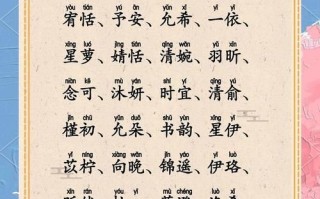 yòu tián yǔ ān yǔn xī yī yī
宥恬、予安、允希、一依、
xīng luó jìng tián qīng wǎn yǔ xīn
星萝、婧恬、清婉、羽昕、
niàn kě mù yán shí yí qīng yú
念可、沐妍、时宜、清俞、
jǐn chū yǔn duǒ shū yùn xīng yī
槿初、允朵、书韵、星伊、
yǐ níng xiàng wǎn jǐn yáo yī luò
苡柠、向晚、锦遥、伊洛、